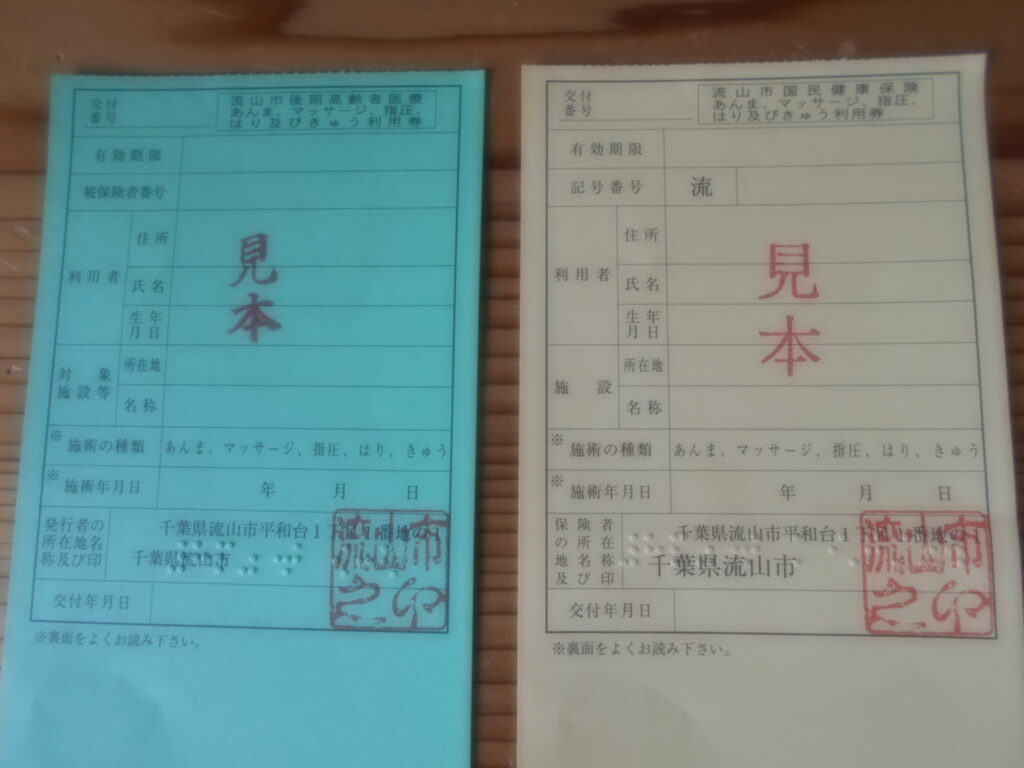 交付
番号
流山市後期高齢者医療
あんま、マッサージ、指圧、
はり及びきゅう利用券
有効期限
被保険者番号
利用者
住所
氏名
生年
月日
見本
対象
施設等
所在地
名称
※施術の種類
あんま、マッサージ、指圧、はり、きゅう
※施術年月日
年 月 日
発行者の
所在地名
称及び印
千葉県流山市平和台1丁目1番地の1
千葉県流山市
流山市之印
交付年月日
※裏面をよくお読み下さい。
交付
番号
流山市国民健康保険
あんま、マッサージ、指圧、
はり及びきゅう利用券
有効期限
記号番号
流
利用者
住所
氏名
生年
月日
見本
施設
所在地
名称
※施術の種類
あんま、マッサージ、指圧、はり、きゅう
※施術年月日
年 月 日
保険者
の所在
地名称
及び印
千葉県流山市平和台1丁目1番地の1
千葉県流山市
流山市之印
交付年月日
※裏面をよくお読み下さい。